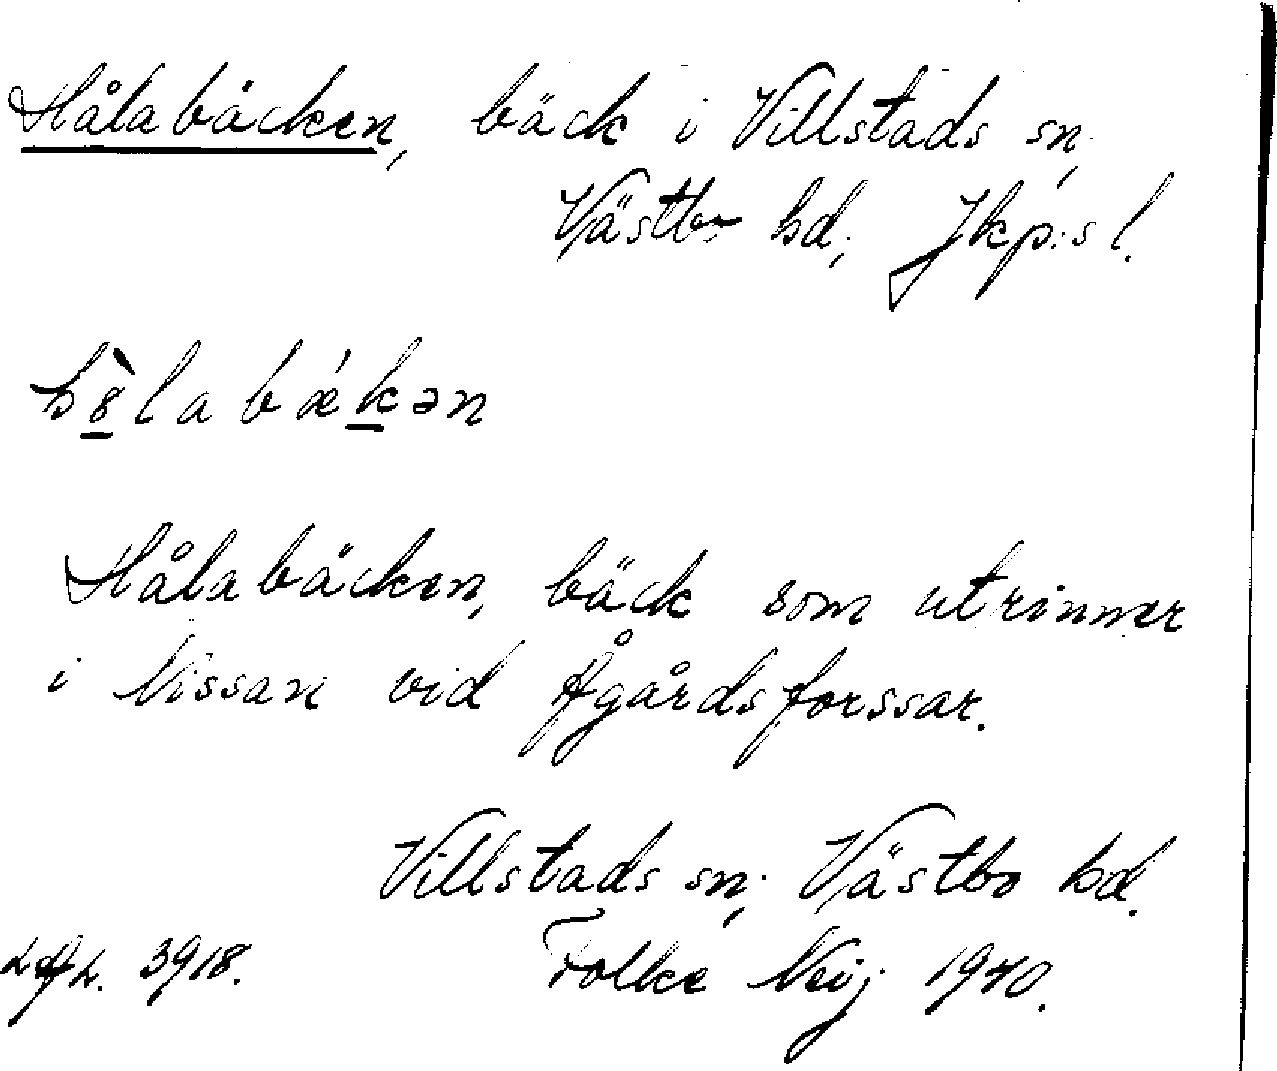 Hålabäcken, bäck i Villstads sn,
Västbo hd, Jkp:s l.
hòlabǽkən
Hålabäcken, bäck som utrinner
i Nissan vid Ågårdsforssar.
Villstads sn, Västbo hd.
3918. Folke Neij 1940.